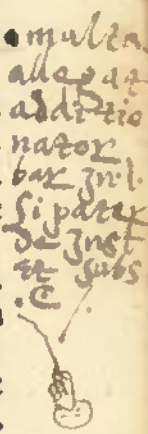 multa
allegat
additio
nator
bar in .l.
si pater
de inst
et subs
.C